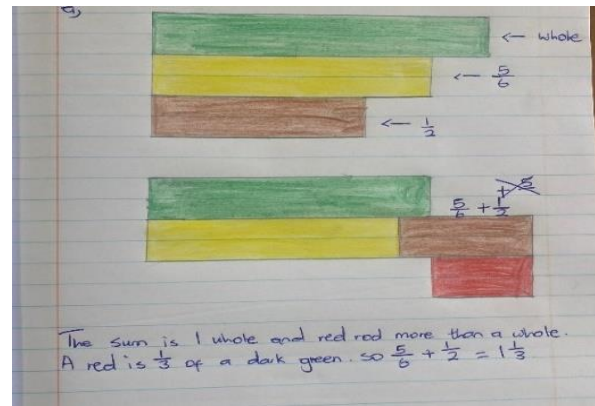 a)
← whole
← 5/6
← 1/2
5/6 + 1/2
The sum is 1 whole and red rod more than a whole.
A red is 1/3 of a dark green. so 5/6 + 1/2 = 1 1/3